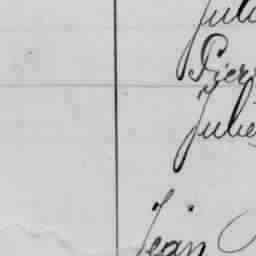 Juli
Pier
Julie
Jean